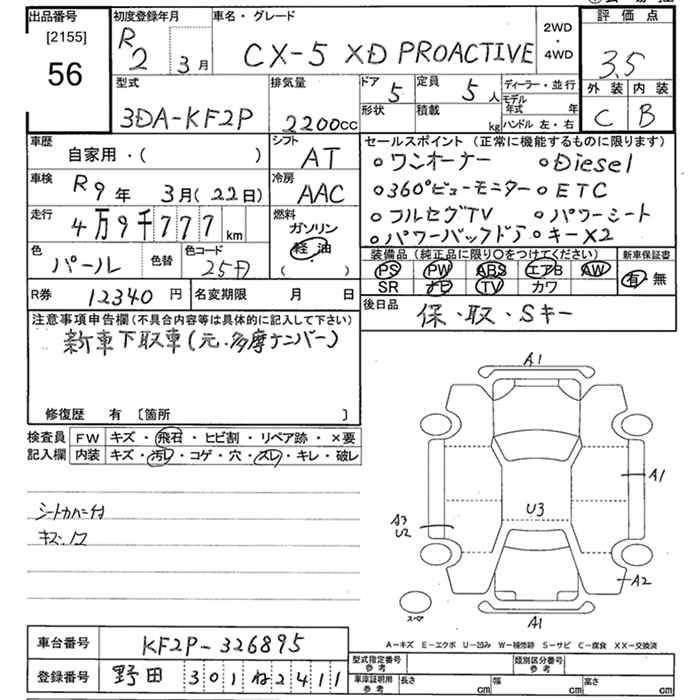 出品番号 初度登録年月 車名・グレード 評価点
[2155]
56
R2 3月 CX-5 XD PROACTIVE 2WD・4WD 3.5
外装 内装
C B
型式 排気量 ドア 定員 ディーラー・並行
3DA-KF2P 2200cc 5 5人 モデル年式 年
形状 積載 kg ハンドル 左・右
車歴 シフト セールスポイント(正常に機能するものに限ります)
自家用・( ) AT
○ワンオーナー ○Diesel
車検 冷房
R9年 3月(22日) AAC
○360°ビューモニター ○ETC
走行 燃料
4万9千777km ガソリン
○フルセグTV ○パワーシート
軽油
○パワーバックドア ○キーX2
色 色替 色コード
パール 25D ( )
装備品(純正品に限り○をつけてください) 新車保証書
PS PW ABS エアB AW 有・無
SR ナビ TV カワ
R券 12340円 名変期限 月 日
後日品 保・取・Sキー
注意事項申告欄(不具合内容等は具体的に記入して下さい)
新車下取車(元・多摩ナンバー)
修復歴 有 [箇所 ]
検査員 FW キズ・飛石・ヒビ割・リペア跡・×要
記入欄 内装 キズ・汚レ・コゲ・穴・スレ・キレ・破レ
シートカバー付
A1
A1
U3
A3
U2
A2
A1
スペア
A=キズ E=エクボ U=凹み W=補修跡 S=サビ C=腐食 XX=交換済
車台番号 KF2P-326895
登録番号 野田 301 ね 2411
型式指定番号 参考 類別区分番号 参考
車庫証明用 参考 長さ cm 幅 cm 高さ cm